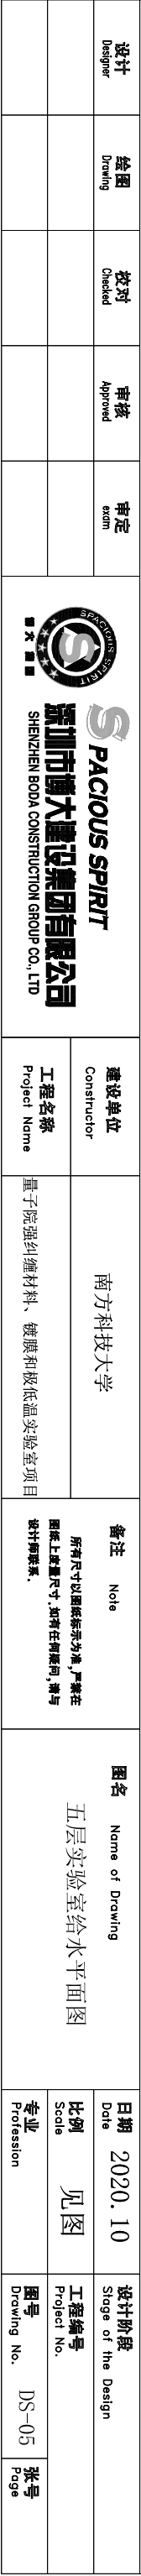 设计
Designer
绘图
Drawing
校对
Checked
审核
Approved
审定
exam
SPACIOUS SPIRIT
博大建设
S PACIOUS SPIRIT
深圳市博大建设集团有限公司
SHENZHEN BODA CONSTRUCTION GROUP CO., LTD
建设单位
Constructor
南方科技大学
工程名称
Project Name
量子院强纠缠材料、镀膜和极低温实验室项目
备注 Note
所有尺寸以图纸标示为准,严禁在
图纸上度量尺寸.如有任何疑问,请与
设计师联系.
图名 Name of Drawing
五层实验室给水平面图
日期
Date
2020.10
设计阶段
Stage of the Design
比例
Scale
见图
工程编号
Project No.
专业
Profession
图号
Drawing No.
DS-05
张号
Page